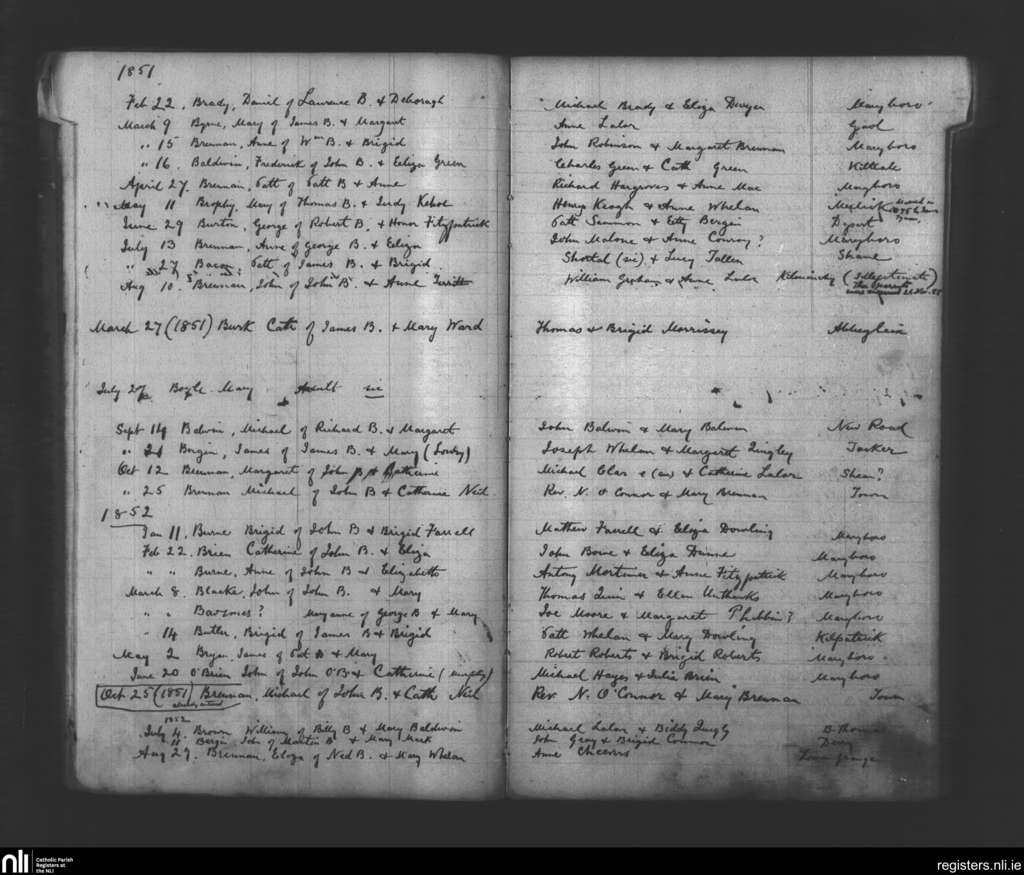 1851
Feb 22, Brady, Daniel of Laurence B. & Deboragh Michael Brady & Eliza Dwyer Maryboro
March 9 Byrne, Mary of James B. & Margaret Anne Lalor Gaol
" 15 Brennan, Anne of Wm B. & Brigid John Robinson & Margaret Brennan Maryboro
" 16. Baldwin, Frederick of John B. & Eliza Green Charles Green & Cath Green Kilteale
April 27. Brennan, Patt of Patt B & Anne Richard Hargroves & Anne Mac Maryboro
May 11 Brophy, Mary of Thomas B. & Judy Kehoe Henry Keogh & Anne Whelan Meelick
June 29 Burton, George of Robert B. & Honor Fitzpatrick Patt Scannon & Etty Bergin Depot
July 13 Brennan, Anne of George B. & Eliza John Malone & Anne Conroy? Maryboro
" 27 Bacon, Patt of James B. & Brigid Shortal (sic) & Lucy Tallen Shane
Aug 10. Brennan, John of John B. & Anne William Graham & Anne Lalor Kilminchy (Illegitimate)
March 27 (1851) Burk Cath of James B. & Mary Ward Thomas & Brigid Morrissey Abbeyleix
July 27 Boyle Mary Adult sic
Sept 14 Balwin, Michael of Richard B. & Margaret John Balwin & Mary Balwin New Road
" 21 Bergin, James of James B. & Mary (Lowry) Joseph Whelan & Margaret Quigley Tasker
Oct 12 Brennan, Margaret of John B & Catherine Michael & Catherine Lalor Shean?
" 25 Brennan Michael of John B & Catherine Neil Rev. N. O'Connor & Mary Brennan Town
1852
Jan 11, Burne Brigid of John B & Brigid Farrell Mathew Farrell & Eliza Dowling Maryboro
Feb 22. Brien Catherine of John B. & Eliza John Bowe & Eliza Dunne Maryboro
" " Burne, Anne of John B & Elizabeth Antony Mortimer & Anne Fitzpatrick Maryboro
March 8. Blacker, John of John B. & Mary Thomas Quin & Ellen Unthanks Maryboro
" " ? Maryanne of George B & Mary Joe Moore & Margaret Phibbin? Maryboro
" 14 Butler, Brigid of James B & Brigid Patt Whelan & Mary Dowling Kilpatrick
May 2 Bryan, James of Pat B & Mary Robert Roberts & Brigid Roberts Maryboro
June 20 O'Brien John of John O'B & Catherine (Murphy) Michael Hayes & Julia Brien Maryboro
Oct 25 (1851) Brennan, Michael of John B. & Cath Neil Rev. N. O'Connor & Mary Brennan Town
already entered
1852
July 4. Brown William of Billy B & Mary Baldwin Michael Lalor & Biddy Quigly
" 11 Bergin John of Martin B & Mary Mack John Gray & Brigid Connor Derry
Aug 29. Brennan, Eliza of Ned B. & Mary Whelan Anne Cheevers
nli
Catholic Parish
Registers at
the NLI
registers.nli.ie